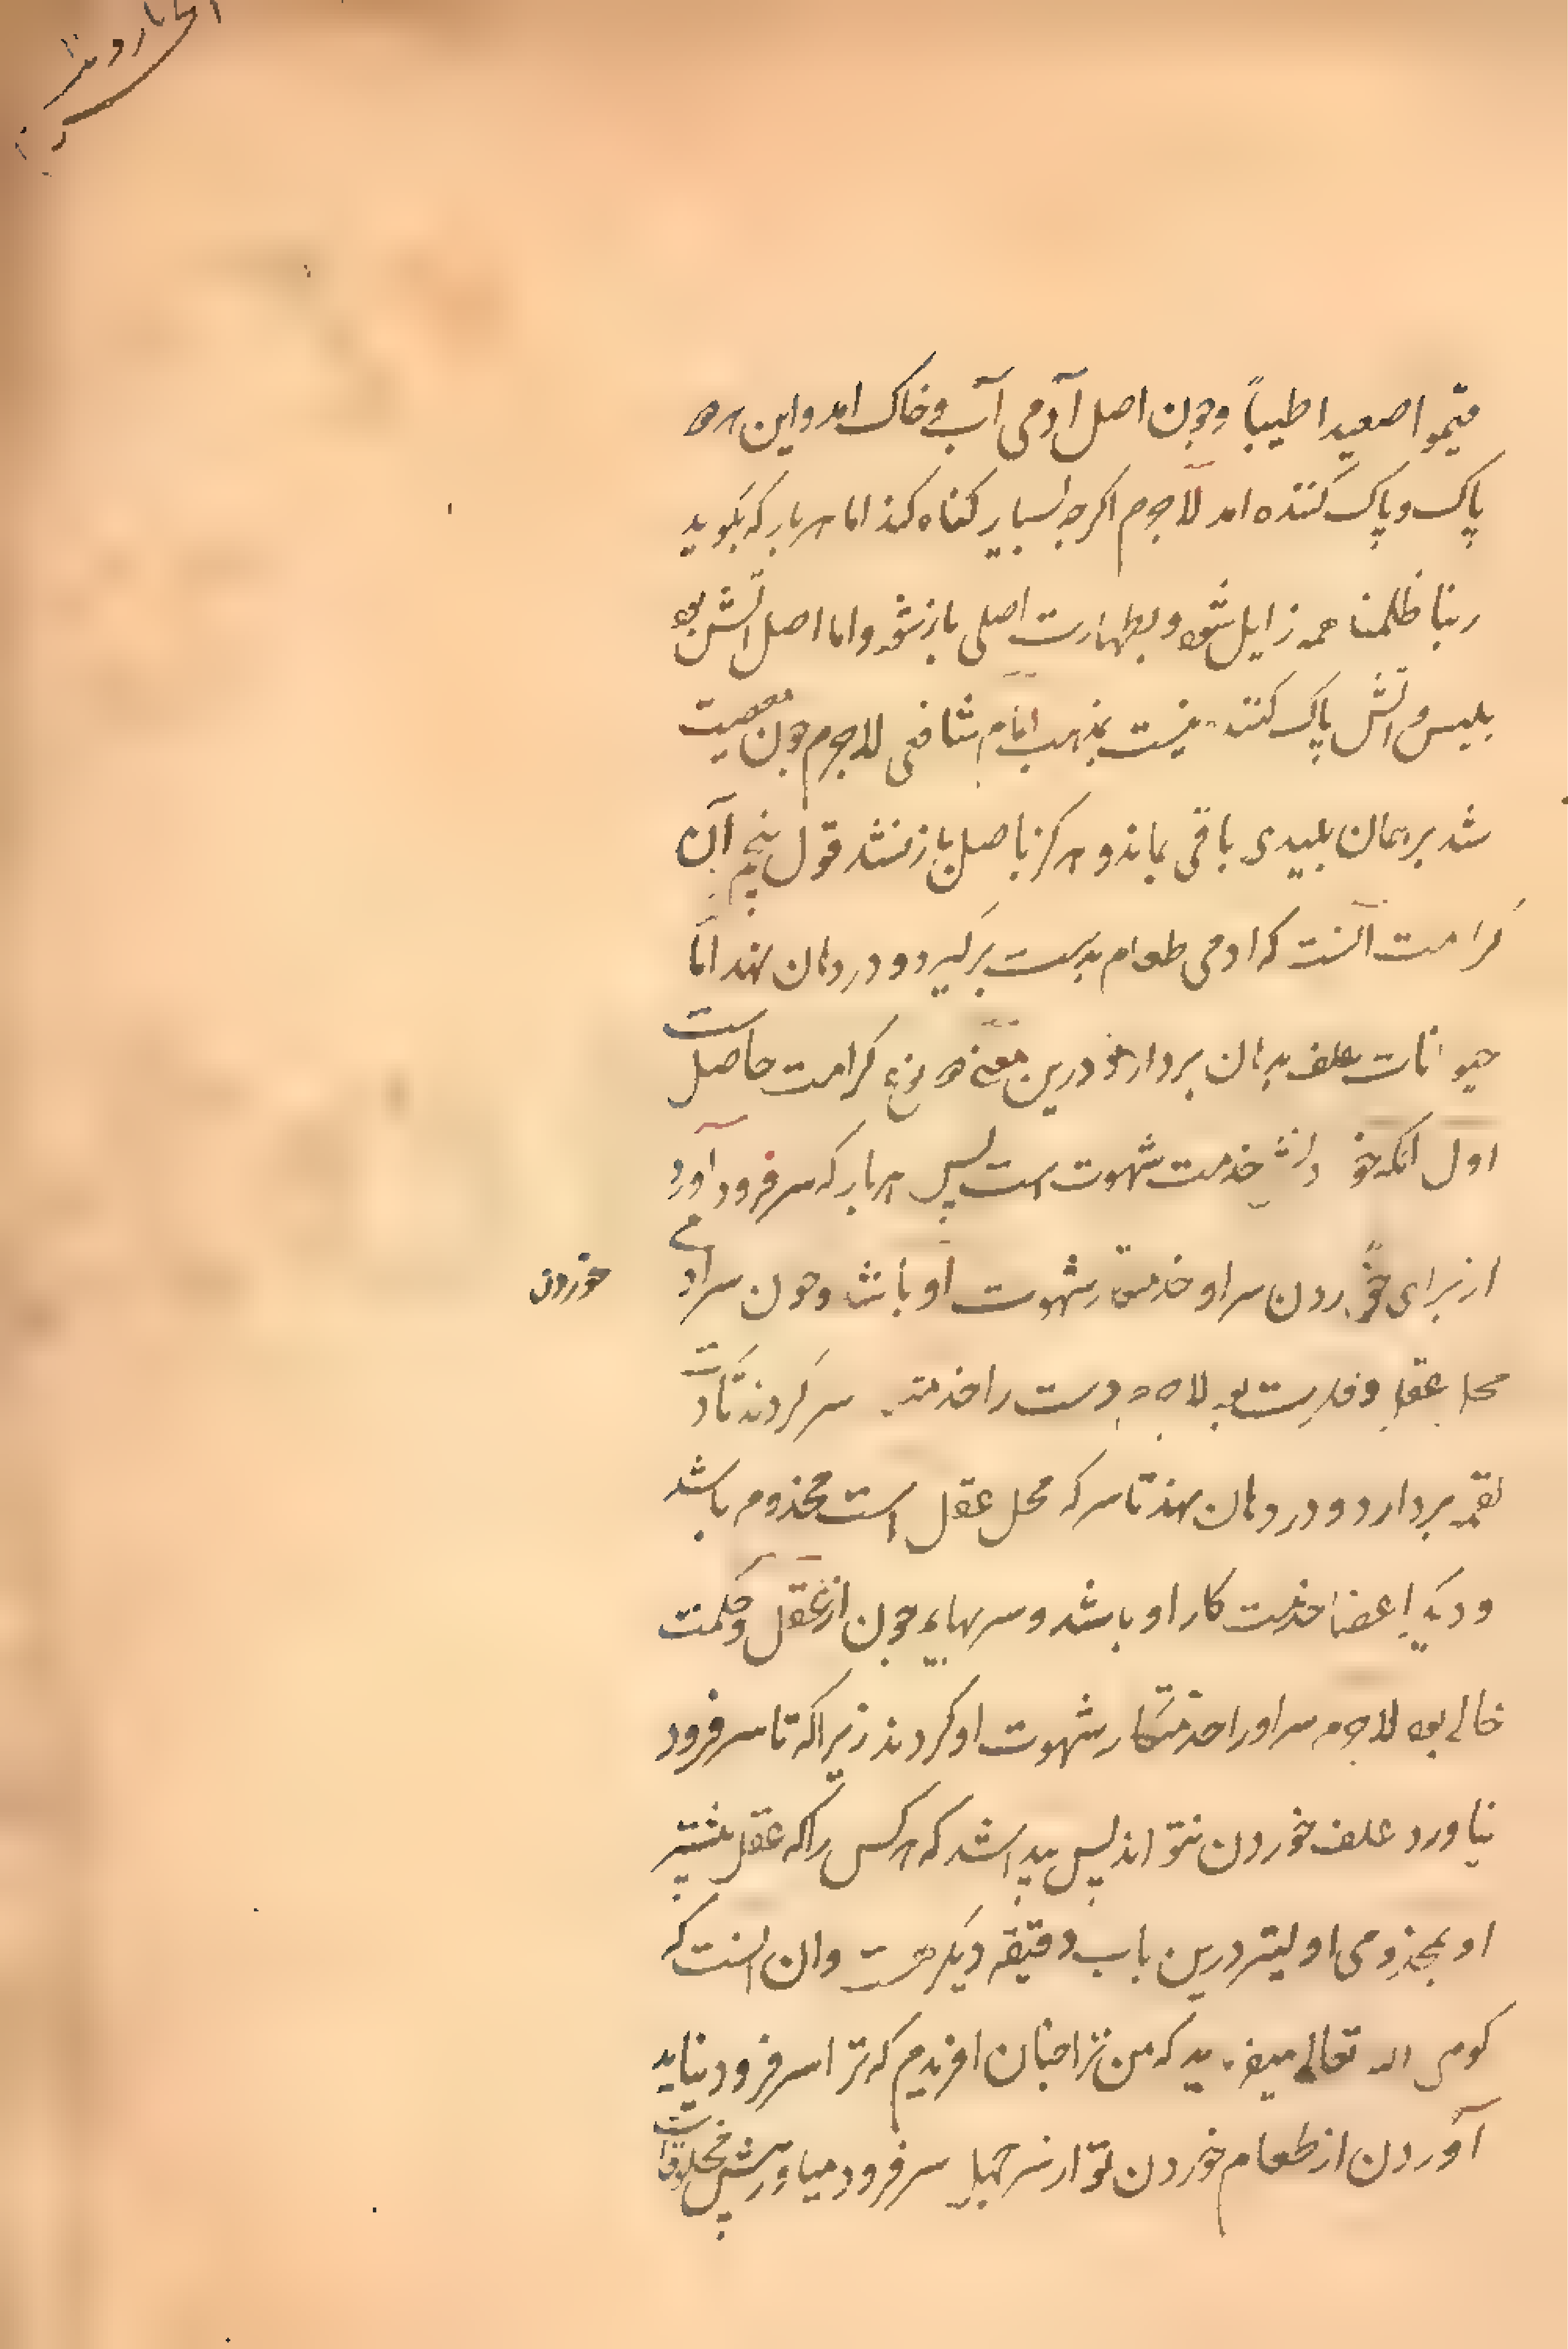 فتیمموا صعیدا طیباً وچون اصل آدمی آب و خاک امد واین هر دو
پاک و پاک کننده امد لاجرم اکرچه بسیار کناه کند اما هر بار که بکوید
ربنا ظلمنا همه زایل شود و بطهارت اصلی باز شود واما اصل ابلیس اتش بود
و اتش پاک کننده نیست بمذهب امام شافعی لاجرم چون معصیت
شد بر همان پلیدی باقی بماند و هرکز باصل باز نشد قول پنجم آن
کرامت انست که ادمی طعام بدست برکیرد و در دهان نهد اما
حیوانات علف بدهان بردارند درین معنی دو نوع کرامت حاصل است
اول انکه خوردن خدمت شهوت است پس هر بار که سر فرود آورد
از برای خوردن سر او خدمتکار شهوت او باشد وچون سر ادمی
خوردن
محل عقل و فکرت بود لاجرم دست را خدمتکار سر کردند تا دست
لقمه بردارد و در دهان نهد تا سر که محل عقل است مخدوم باشد
و دیکر اعضا خدمتکار او باشد و سر بهایم چون از عقل و حکمت
خالی بود لاجرم سر او را خدمتکار شهوت او کردند زیرا که تا سر فرود
نیاورد علف خوردن نتواند پس پیدا شد که هر کس را که عقل بیشتر
او بمخدومی اولیتر درین باب دقیقه دیکر هست وان انست که
کویی الله تعالی میفرماید که من ترا چنان افریدم که ترا سر فرود نباید
آوردن از طعام خوردن تو از سر جهل سر فرود میاور پیش مخلوقات